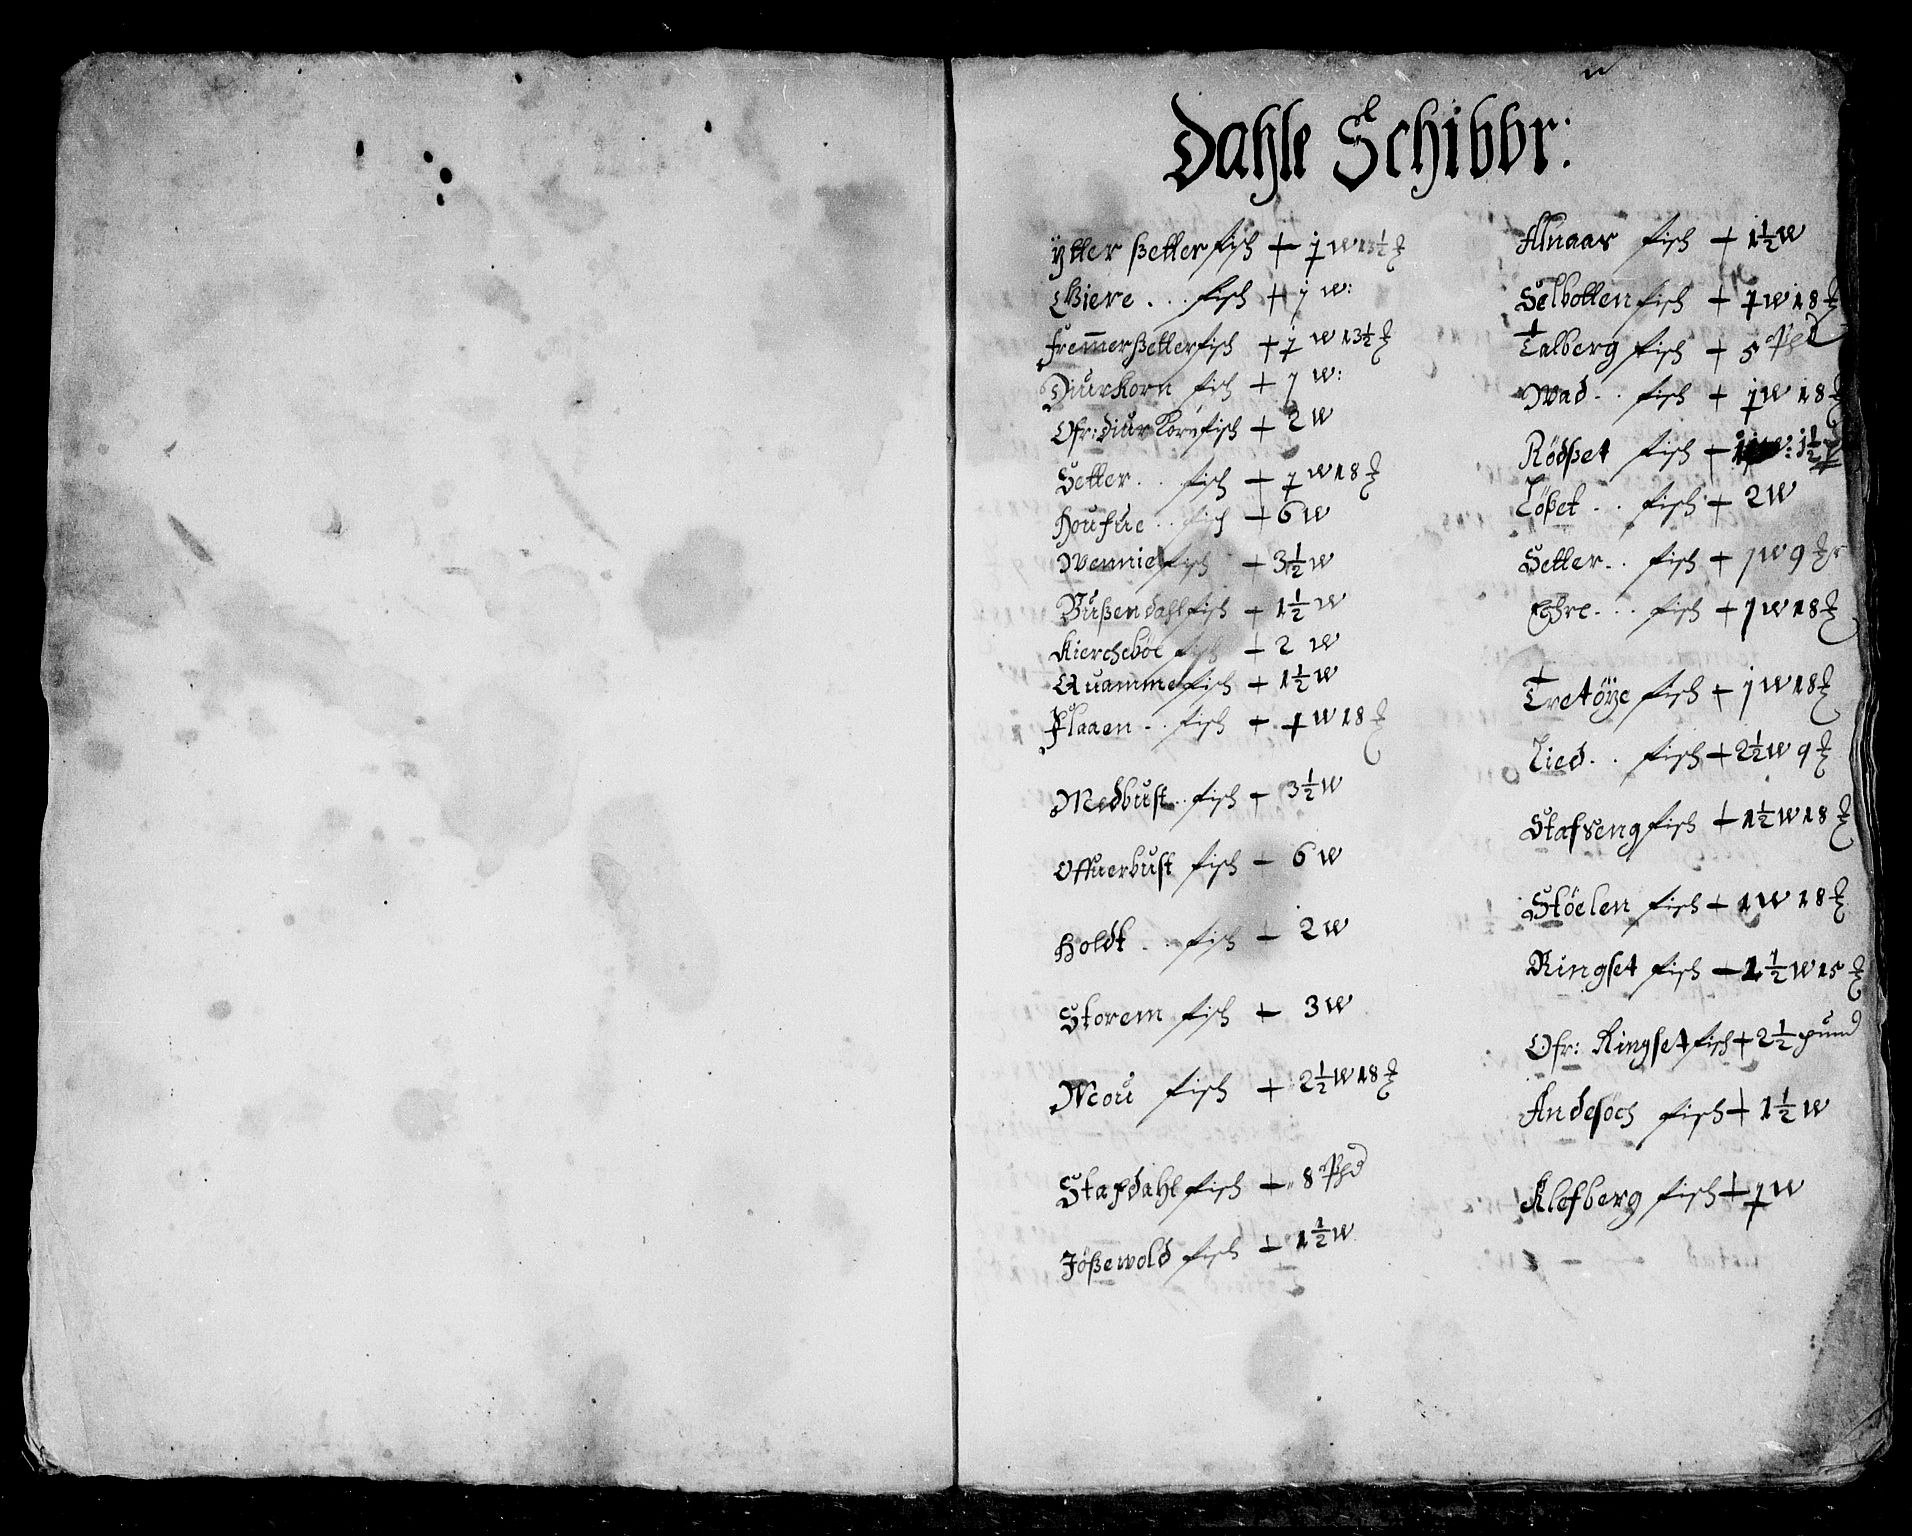 Dahle Schibbr:
ÿtter ßetter fisch + 1 w 13½ ℔
Giere . . . fisch + 1 w:
fremmer ßetter fisch + 1 w 13½ ℔
Diurkorn fisch + 1 w:
Ofr: diur Korn fisch + 2 w
Setter . . fisch + 1 w 18 ℔
Houfue . . fisch + 6 w
Wennie fisch + 3½ w
Bußendahl fisch + 1½ w
Kiercheböe fisch + 2 w
Quamme fisch + 1½ w
Plaaen . . fisch + 1 w 18 ℔
Medbust . . fisch + 3½ w
Offuerbust fisch + 6 w
Holdt . . fisch + 2 w
Storem fisch + 3 w
Mou fisch + 2½ w 18 ℔
Stafdahl fisch + 8 Phd
Jößewold fisch + 1½ w
Alnaas fisch + 1½ w
Selbotten fisch + 1 w 18 ℔
Talberg fisch + 5 Phd
Wad . . fisch + 1 w 18 ℔
Rödßet fisch + w: 1½
Lößet . . fisch + 2 w
Setter . . fisch + 1 w 9 ℔r
fisch + 1 w 18 ℔
Tretöÿe fisch + 1 w 18 ℔
Lied . . fisch + 2½ w 9 ℔
Stafseng fisch + 1½ w 18 ℔
Stöelen fisch + 1 w 18 ℔
Ringset fisch + 1½ w 15 ℔
Ofr: Ringset fisch + 2½ pund
Andesöch fisch + 1½ w
Klefberg fisch + 1 w